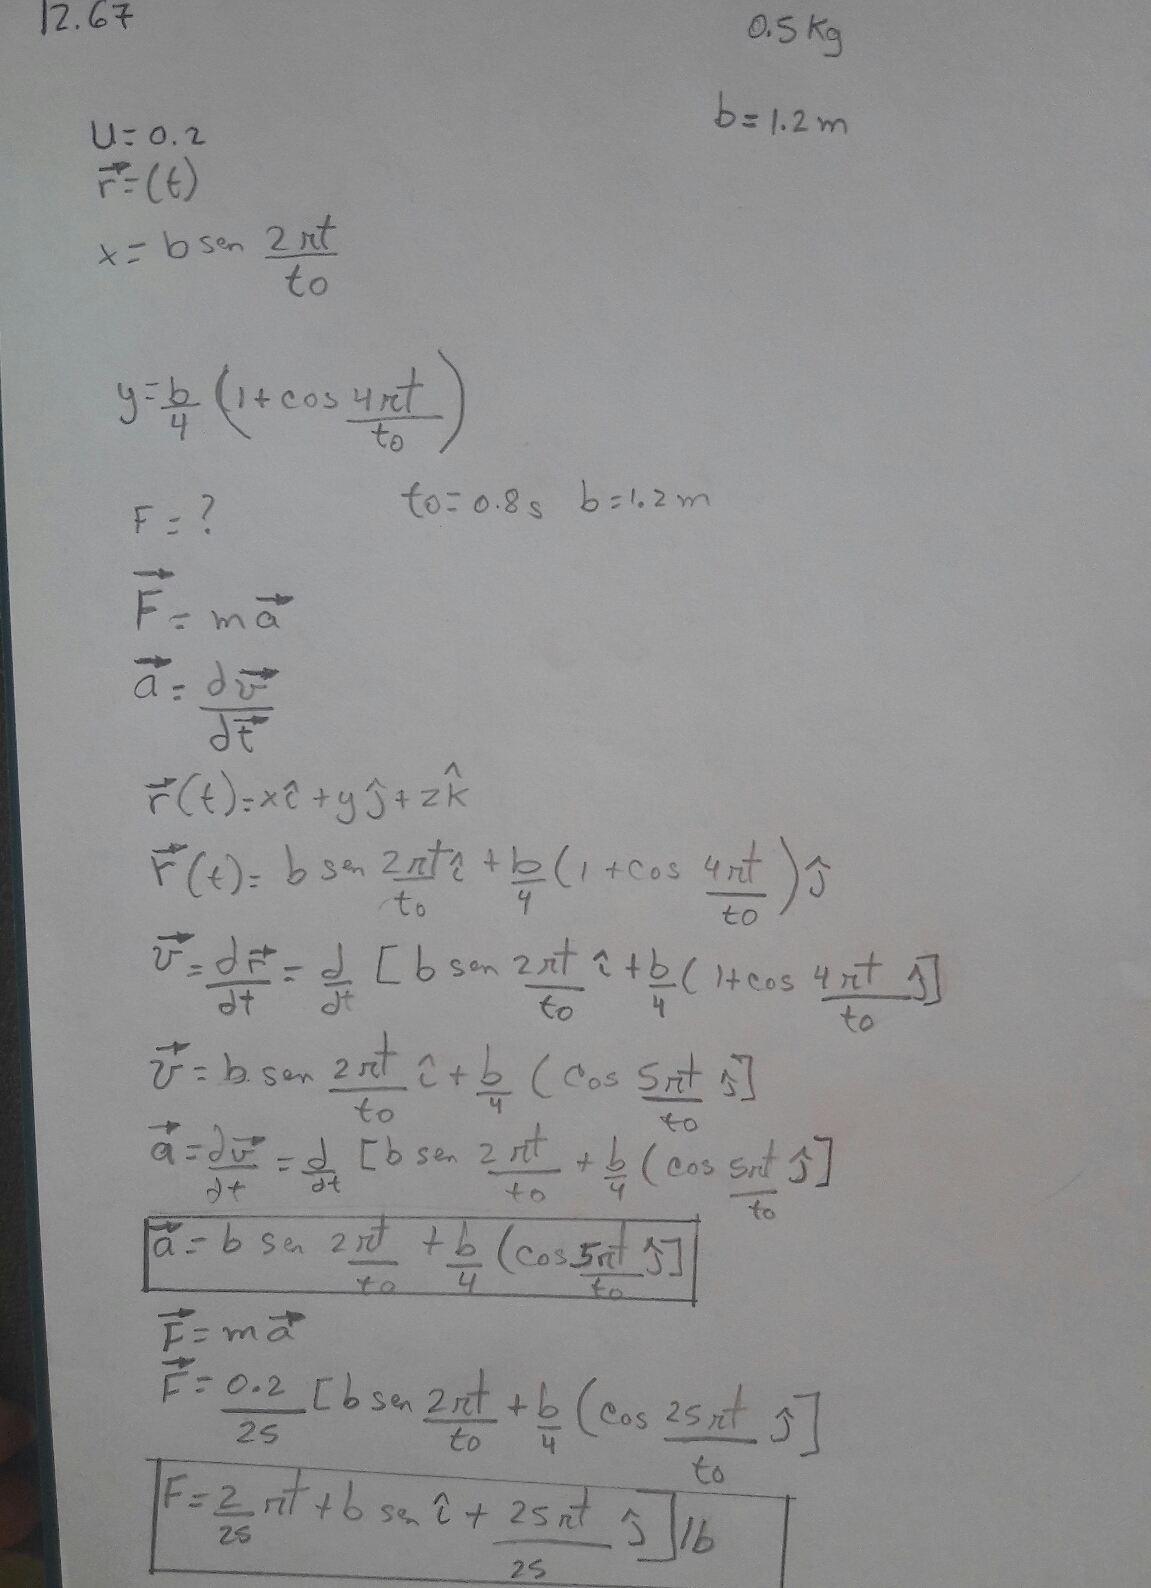 12.67
0.5 Kg
b=1.2m
U=0.2
r⃗=(t)
x= b sen 2πt/to
y=b/4 (1+cos 4πt/to)
to=0.8s b=1.2m
F=?
F⃗=ma⃗
a⃗=dv⃗/dt⃗
r⃗(t)=xî+yĵ+zk̂
r⃗(t)= b sen 2πt/to î+b/4(1+cos 4πt/to)ĵ
v⃗=dr⃗/dt=d/dt [b sen 2πt/to î+b/4(1+cos 4πt/to ĵ]
v⃗=b sen 2πt/to î+b/4 (cos 5πt/to ĵ]
a⃗=dv⃗/dt=d/dt [b sen 2πt/to +b/4(cos 5πt/to ĵ]
a⃗=b sen 2πt/to +b/4(cos 5πt/to ĵ]
F⃗=ma⃗
F⃗=0.2/25 [b sen 2πt/to +b/4(cos 25πt/to ĵ]
F=2/25 πt+b sen î+25πt/25 ĵ]lb